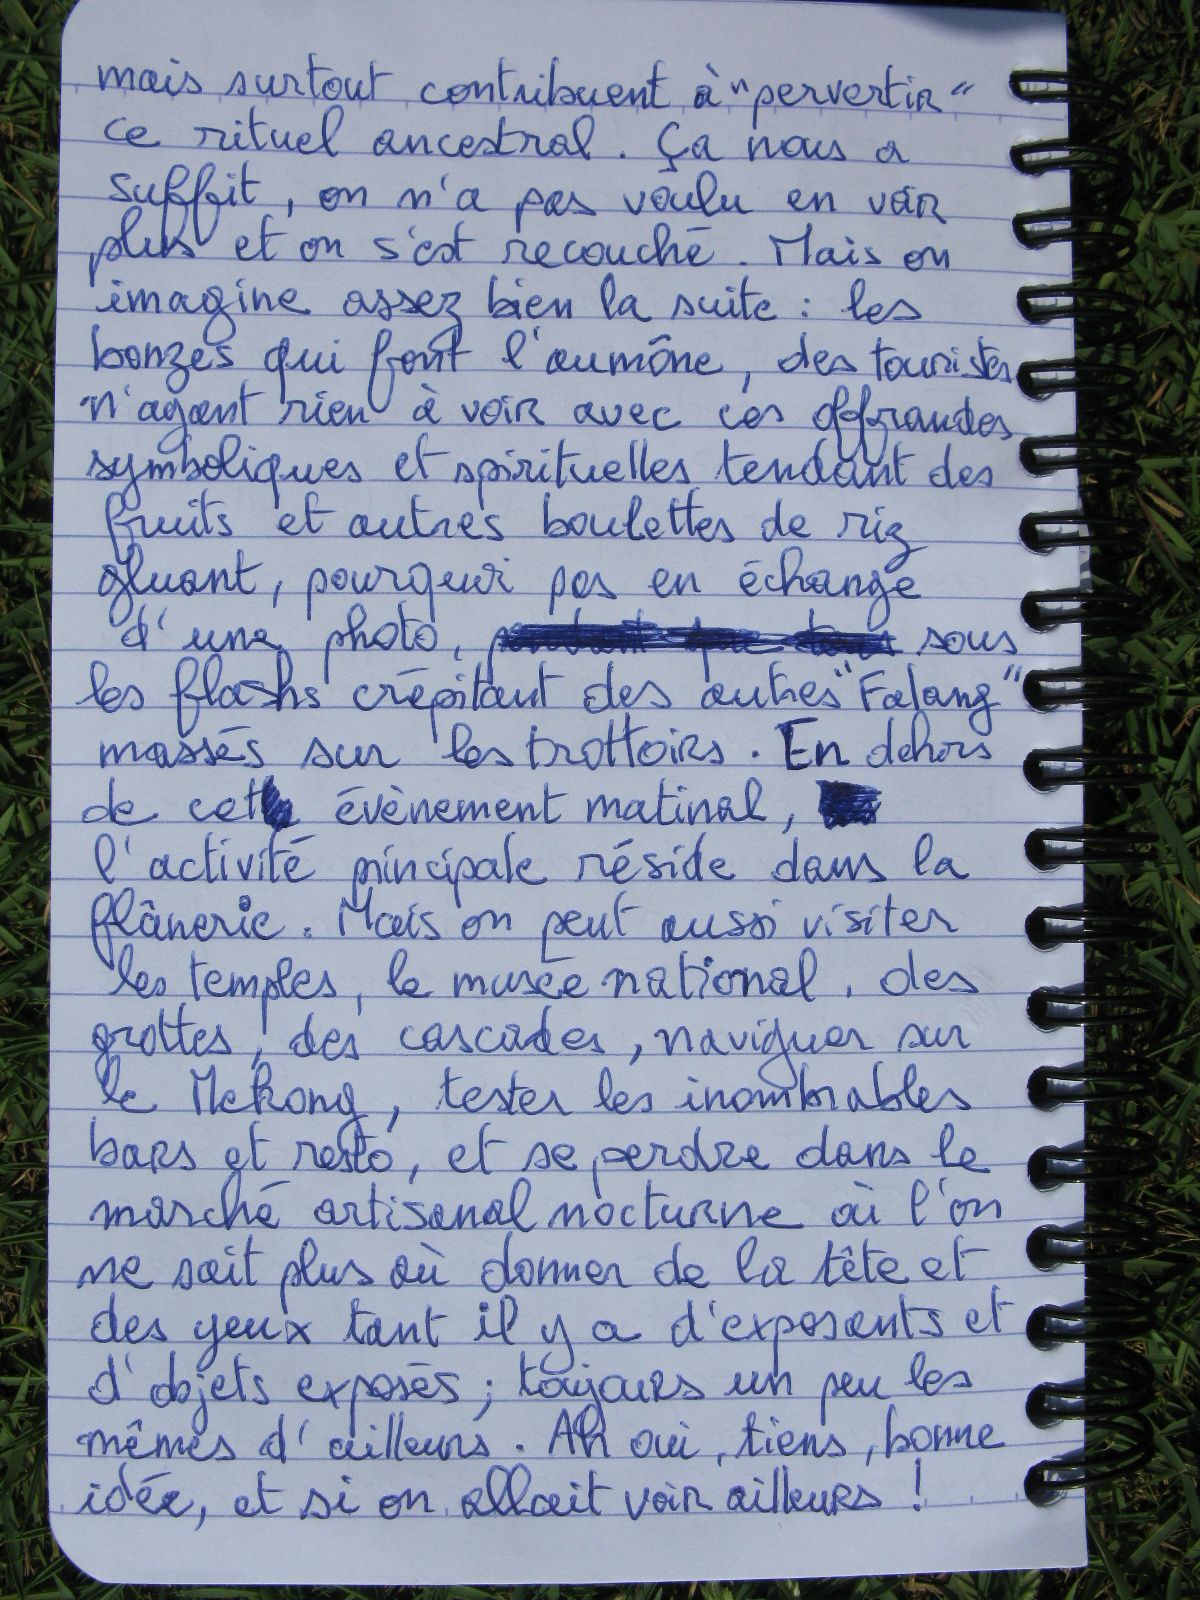 mais surtout contribuent à "pervertir"
ce rituel ancestral. Ça nous a
suffit, on n'a pas voulu en voir
plus et on s'est recouché. Mais on
imagine assez bien la suite : les
bonzes qui font l'aumône, des touristes
n'ayant rien à voir avec ces offrandes
symboliques et spirituelles tendant des
fruits et autres boulettes de riz
gluant, pourquoi pas en échange
d'une photo, sous
les flashs crépitant des autres "Falang"
massés sur les trottoirs. En dehors
de cet évènement matinal,
l'activité principale réside dans la
flânerie. Mais on peut aussi visiter
les temples, le musée national, des
grottes, des cascades, naviguer sur
le Mekong, tester les inombrables
bars et resto, et se perdre dans le
marché artisanal nocturne où l'on
ne sait plus où donner de la tête et
des yeux tant il y a d'exposants et
d'objets exposés ; toujours un peu les
mêmes d'ailleurs. Ah oui, tiens, bonne
idée, et si on allait voir ailleurs !